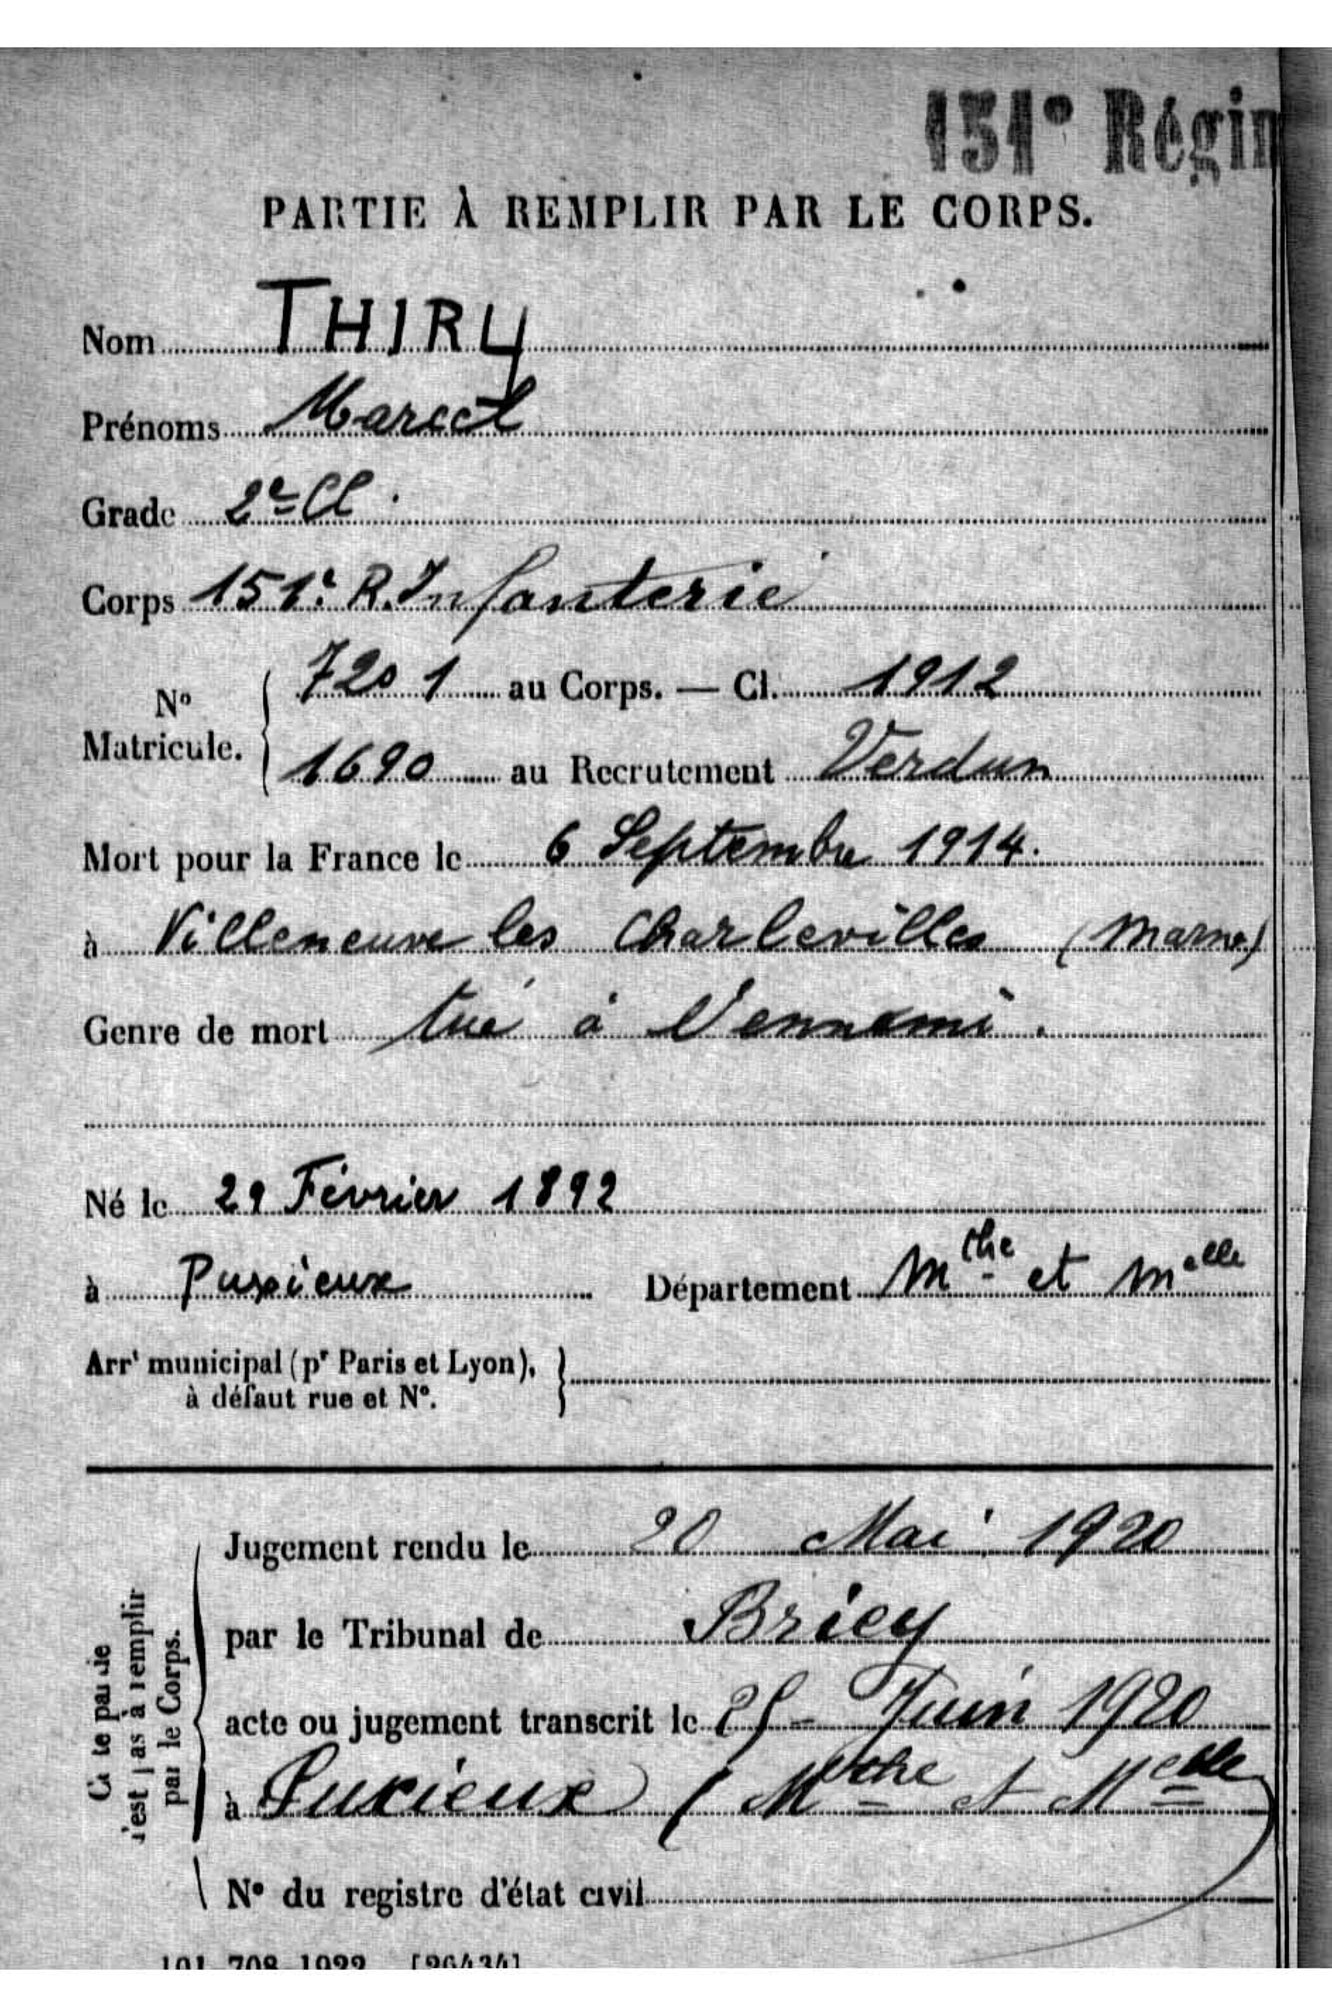 151e Régim
PARTIE À REMPLIR PAR LE CORPS.
Nom THIRY
Prénoms Marcel
Grade 2e Cl.
Corps 151e R. Infanterie
No Matricule. 7201 au Corps. — Cl. 1912
1690 au Recrutement Verdun
Mort pour la France le 6 Septembre 1914.
à Villeneuve les Charlevilles (Marne)
Genre de mort tué à l'ennemi.
Né le 29 Février 1892
à Puxieux Département Mthe et Melle
Arrt municipal (pr Paris et Lyon),
à défaut rue et N°.
Cette partie
n'est pas à remplir
par le Corps.
Jugement rendu le 20 Mai 1920
par le Tribunal de Briey
acte ou jugement transcrit le 25 Juin 1920
à Puxieux (Mthe et Melle)
N° du registre d'état civil
101-708-1922. [26434]